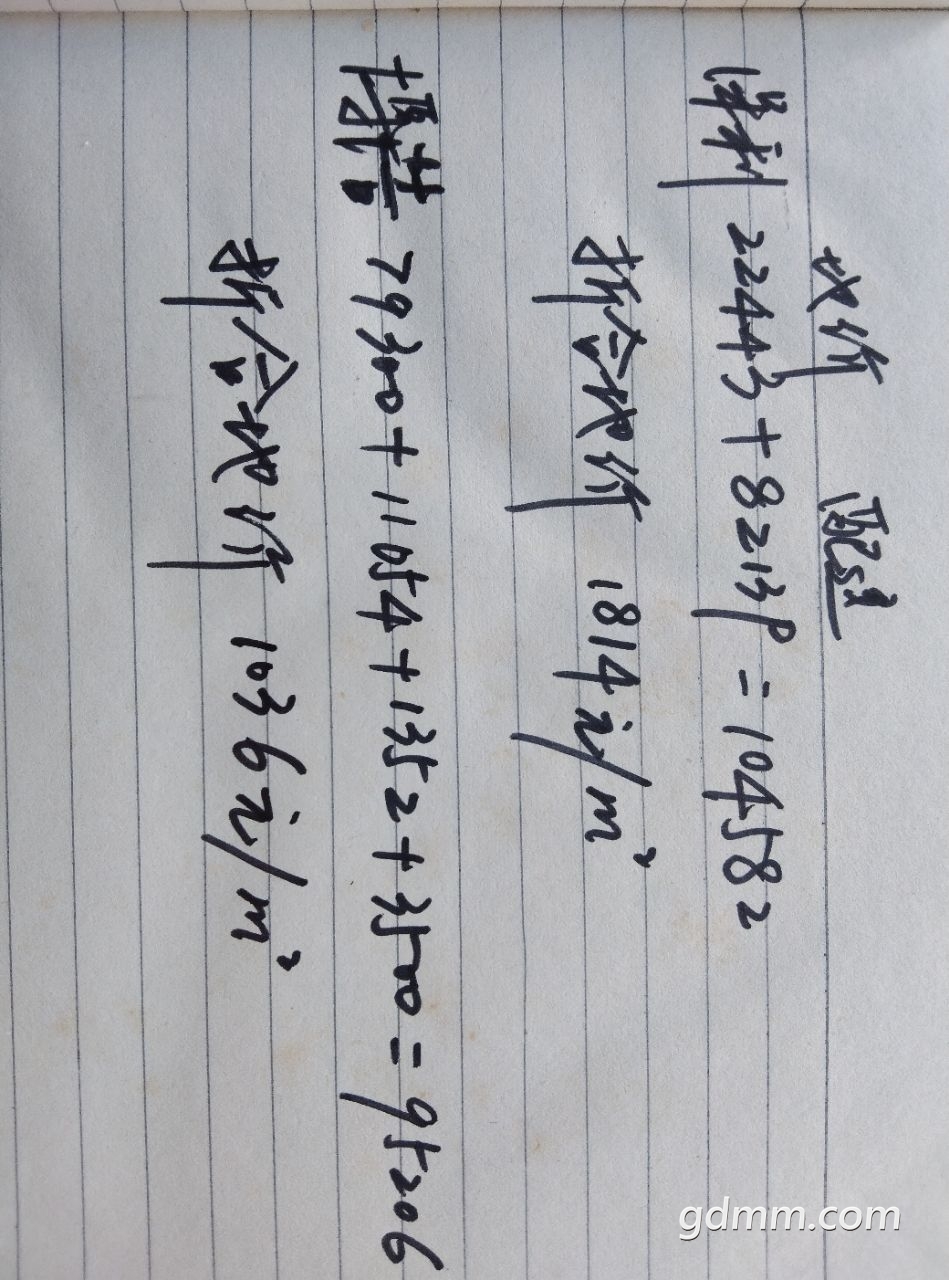 地价 配建
22443+82139=104582
折合地价 1814元/m²
79300+11054+1352+3500=95206
折合地价 1036元/m²
gdmm.com